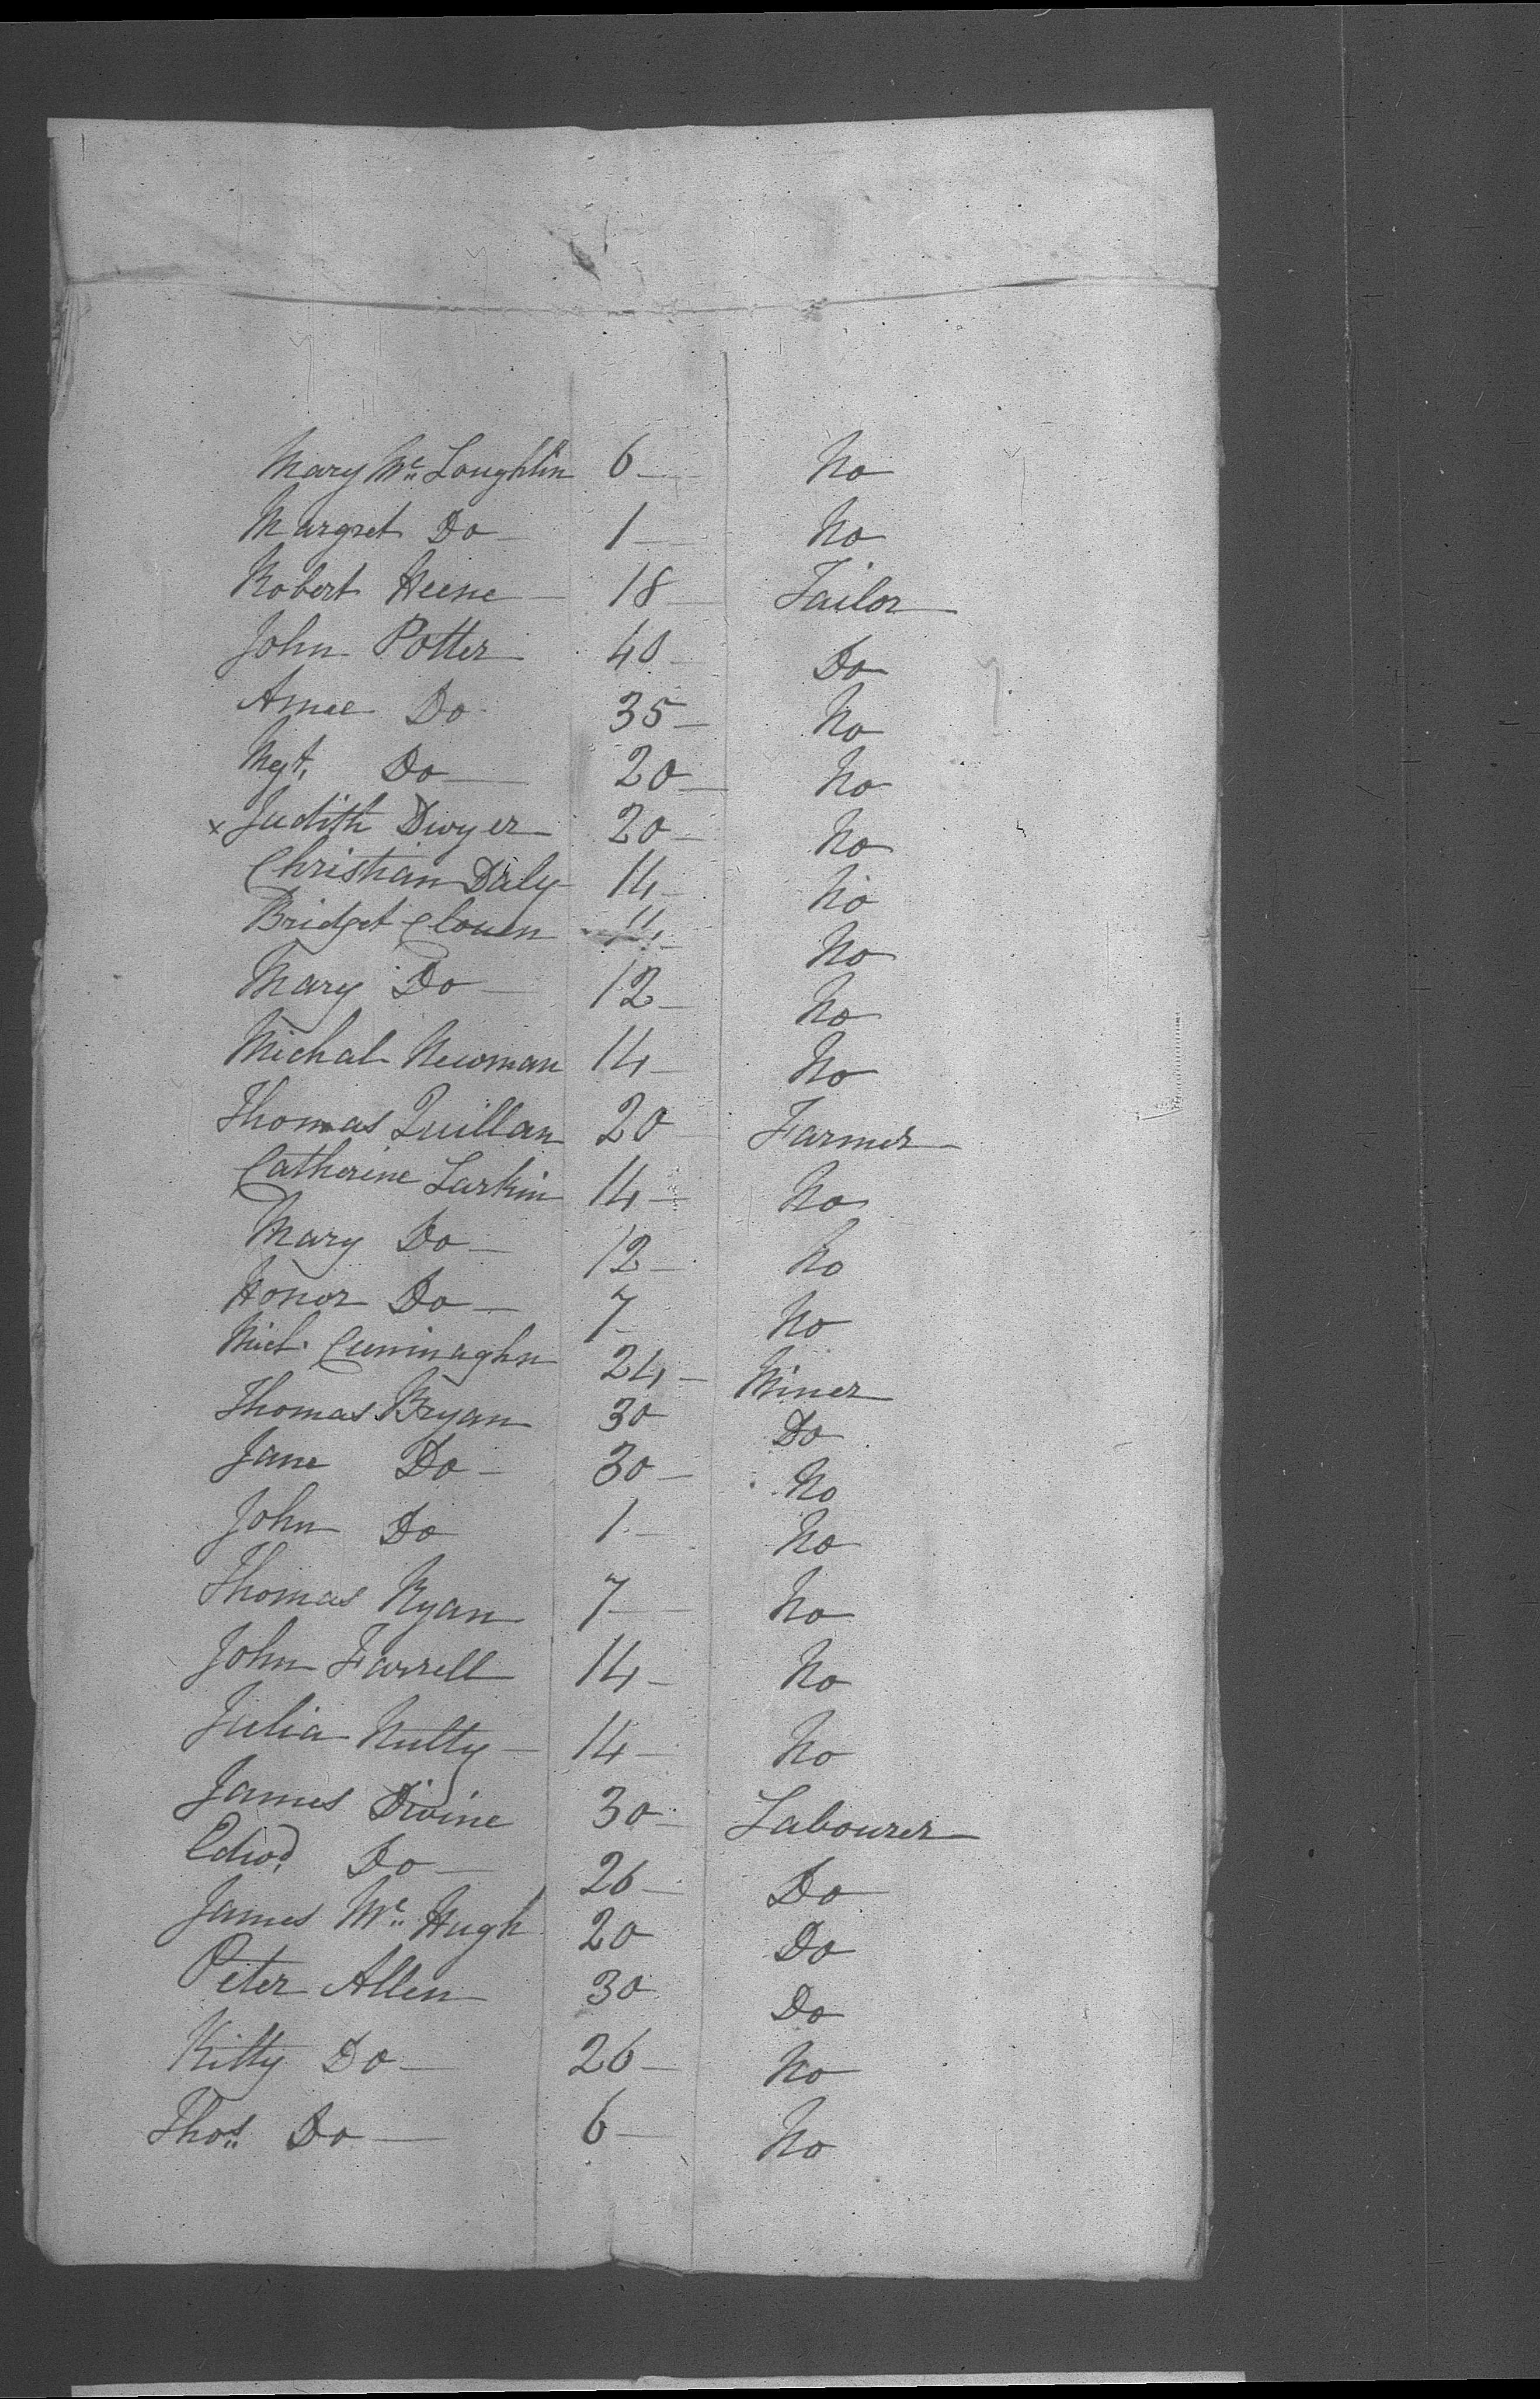 Mary Mc Loughlin 6 No
Margret Do 1 No
Robert Keene 18 Tailor
John Potter 40 Do
Amee Do 35 No
Mgt. Do 20 No
x Judith Dwyer 20 No
Christian Daly 14 No
Bridget Clouen No
Mary Do 12 No
Michal Newman 14 No
Thomas Quillan 20 Farmer
Catherine Larkin 14 No
Mary Do 12 No
Honor Do 7 No
Mich. Cuninaghn 24 Miner
Thomas Bryan 30 Do
Jane Do 30 No
John Do 1 No
Thomas Ryan 7 No
John Farrell 14 No
Julia Nulty 14 No
James Divine 30 Labourer
Edwd. Do 26 Do
James Mc Hugh 20 Do
Peter Allen 30 Do
Kitty Do 26 No
Thos. Do 6 No